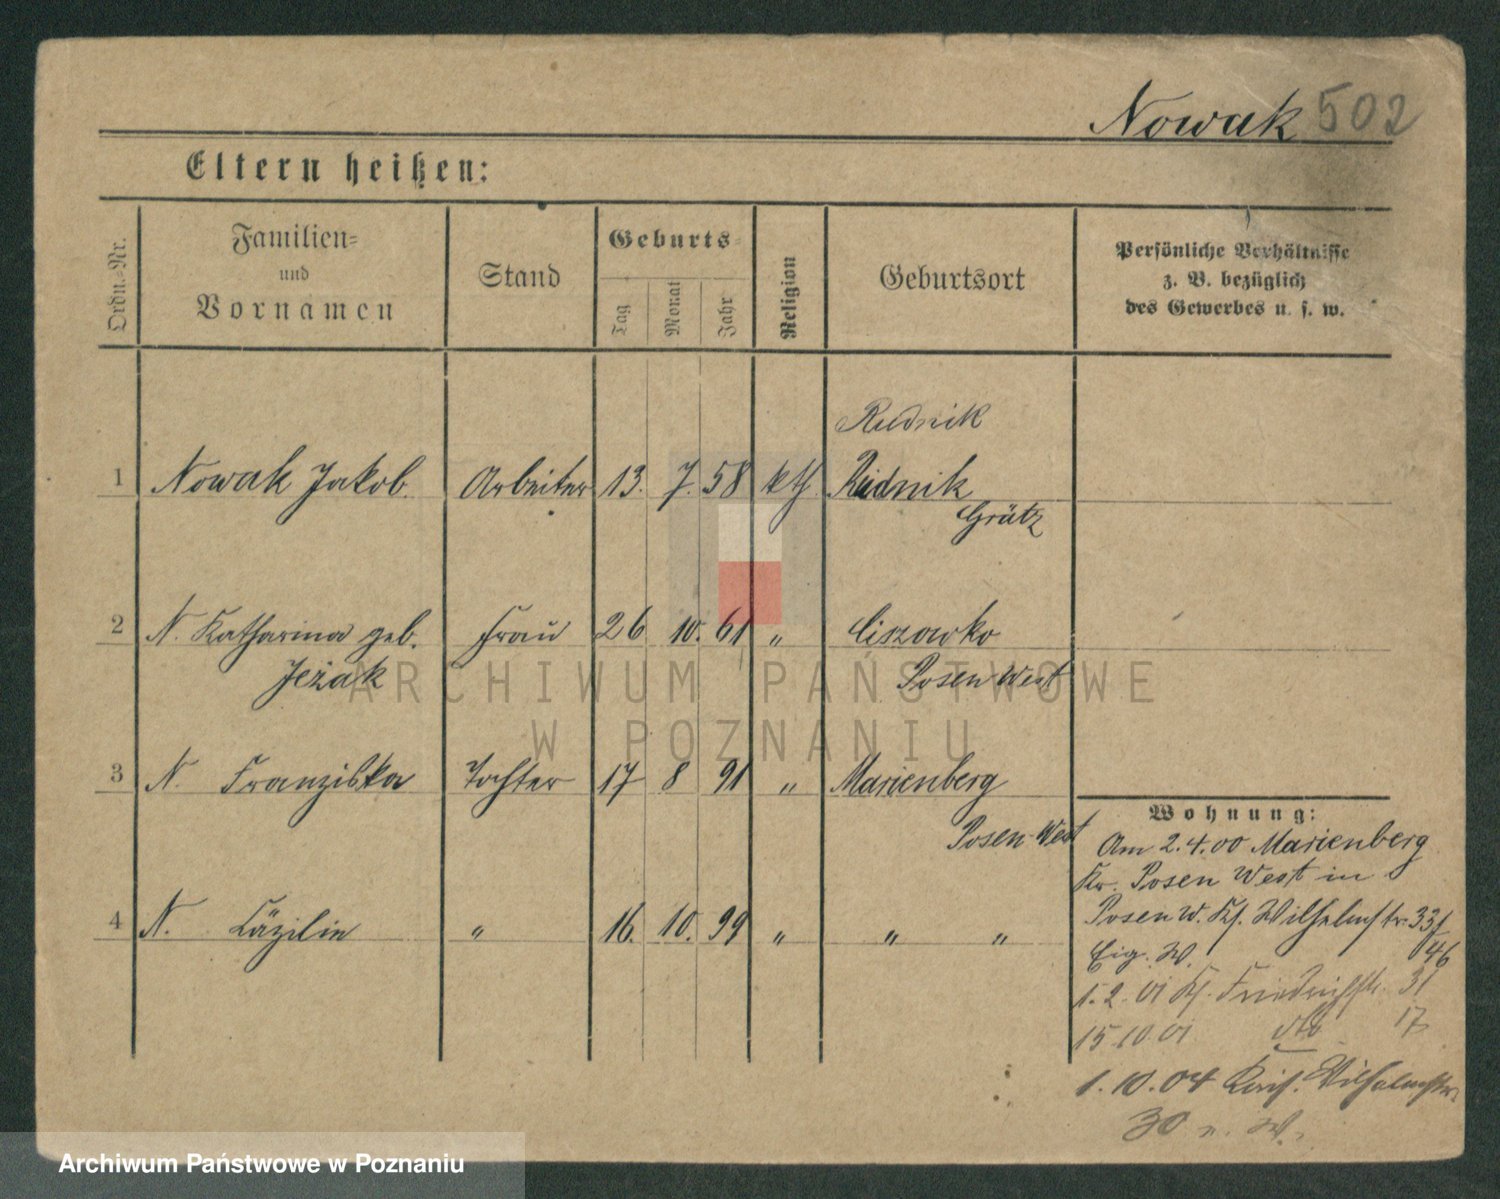 Nowak 502
Eltern heißen:
Ordn.-Nr.
Familien-
und
Vornamen
Stand
Geburts-
Tag
Monat
Jahr
Religion
Geburtsort
Persönliche Verhältnisse
z. B. bezüglich
des Gewerbes u. s. w.
Rudnik
1 Nowak Jakob Arbeiter 13. 7. 58 kth Rudnik
Grätz
2 N. Katharina geb. Frau 26 10. 61 " Ciszowko
Jeżak Posen West
3 N. Franziska Tochter 17 8 91 " Marienberg
Posen-West
4 N. Cäzilie " 16. 10. 99 " " "
Wohnung:
Am 2.4.00 Marienberg
Kr. Posen West in
Posen W. Kf. Wilhelmstr. 33/
46
Eig. W.
1.2.01 Kf. Friedrichstr. 31
15.10.01 dto 17
1.10.04 Wilhelmstr.
30 W.
ARCHIWUM PAŃSTWOWE
W POZNANIU
Archiwum Państwowe w Poznaniu